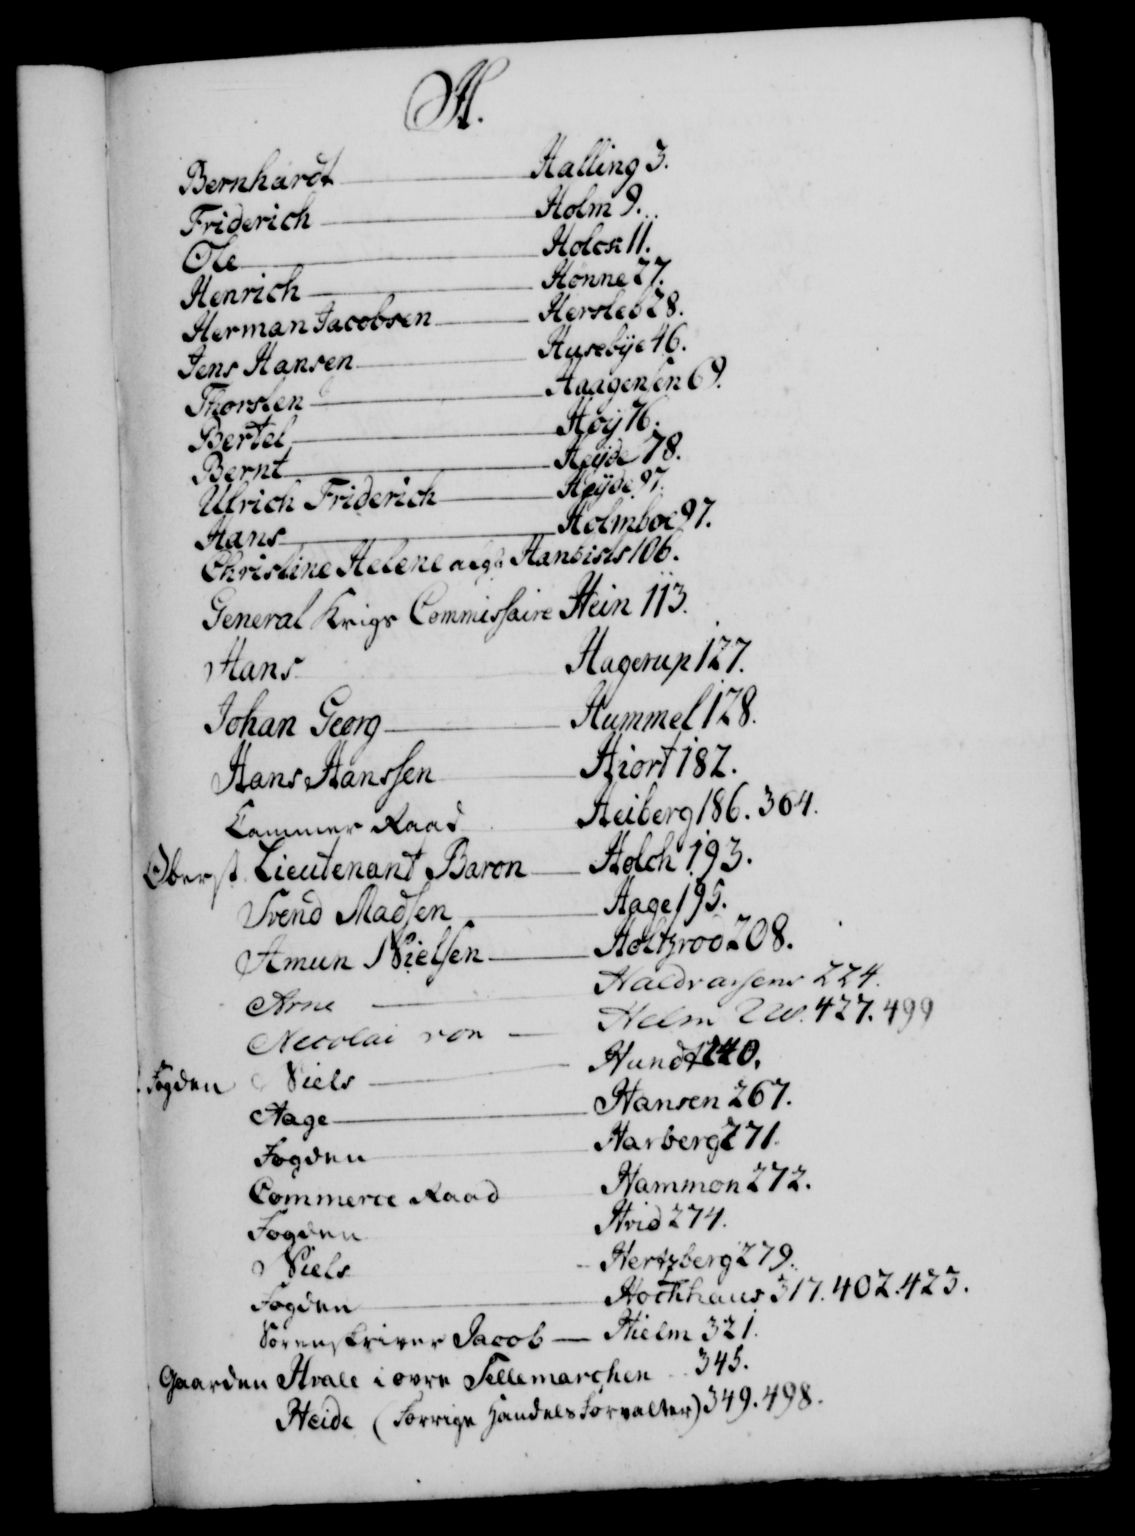 H.
Bernhardt Halling 3.
Friderich Holm 9.
Ole Holck 11.
Henrich Hønne 27.
Herman Jacobsen Hersleb 28.
Jens Hansen Husebÿe 46.
Thorsten Haagensen 69.
Bertel Høÿ 76.
Bernt Heÿde 78.
Ulrich Friderich Heÿde 97.
Hans Holmboe 97.
Christine Helene 106.
General Krigs Commissaire Hein 113.
Hans Hagerup 127.
Johan Georg Hummel 128.
Hans Hanssen Hiort 182.
Kammer Raad Heiberg 186. 364.
Oberst Lieutenant Baron Holck 193.
Svend Madsen Hage 195.
Amun Nielsen Holtzrod 208.
Arne Haldvarsens 224.
Necolai von Helm 427. 499
Fogden Niels Hundt 240.
Aage Hansen 267.
Fogden Harberg 271.
Commerce Raad Hammon 272.
Fogden Hvid 274.
Niels Hertzberg 279.
Fogden Hockhaus 317. 402. 423.
Sorenskriver Jacob Hielm 321.
Gaarden Hvale i øvre Tellemarchen 345.
Heide (Forrige Handels Forvalter) 349. 498.